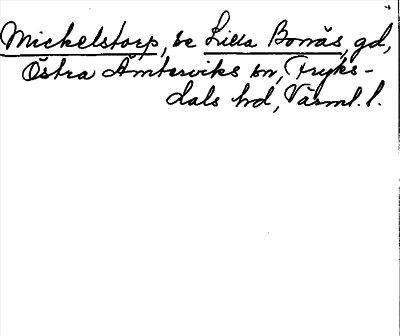 Mickelstorp, se Lilla Borrås, gd,
Östra Ämterviks sn, Fryks-
dals hd, Värml. l.